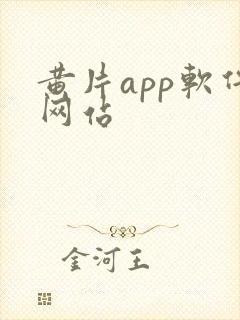 黄片app軟件
网站
金河王